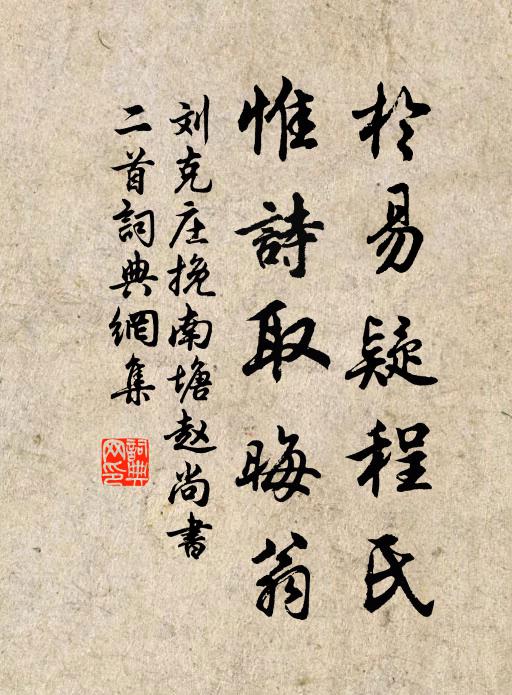 於易疑程氏
惟詩取晦翁
刘克庄挽南塘赵尚書
二首詞典網集
詞典网印